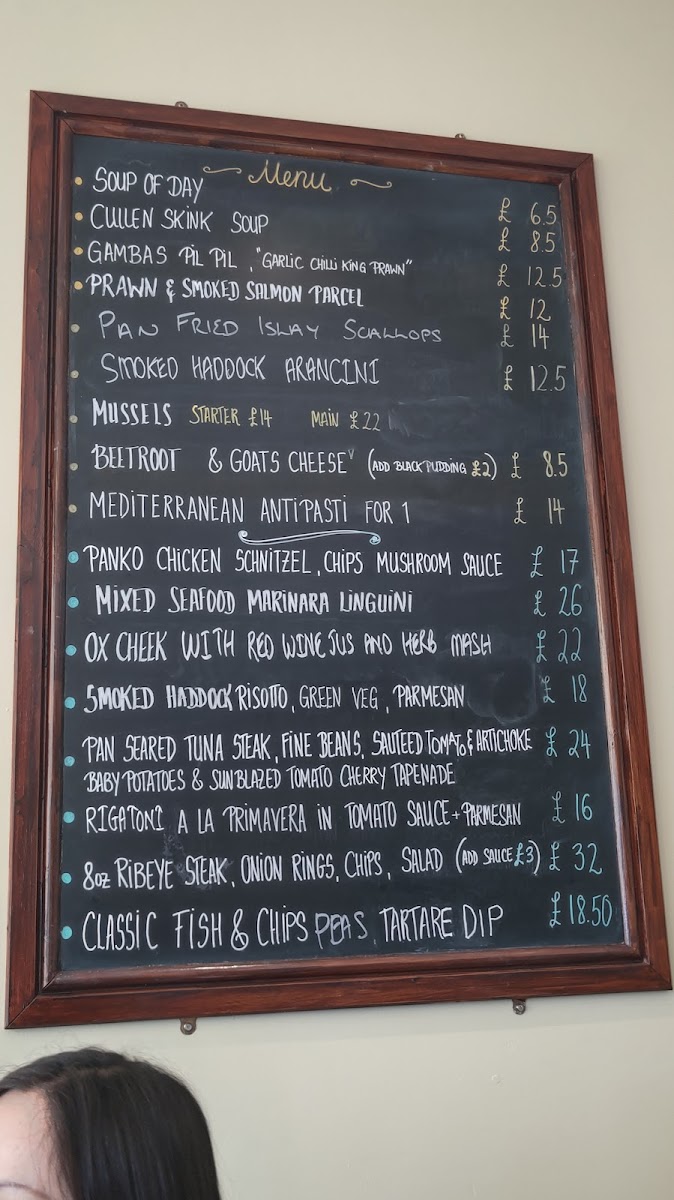 Menu
SOUP OF DAY £ 6.5
CULLEN SKINK SOUP £ 8.5
GAMBAS PIL PIL, "GARLIC CHILLI KING PRAWN" £ 12.5
PRAWN & SMOKED SALMON PARCEL £ 12
PAN FRIED ISLAY SCALLOPS £ 14
SMOKED HADDOCK ARANCINI £ 12.5
MUSSELS STARTER £14 MAIN £22
BEETROOT & GOATS CHEESE (ADD BLACK PUDDING £2) £ 8.5
MEDITERRANEAN ANTIPASTI FOR 1 £ 14
PANKO CHICKEN SCHNITZEL, CHIPS MUSHROOM SAUCE £ 17
MIXED SEAFOOD MARINARA LINGUINI £ 26
OX CHEEK WITH RED WINE JUS AND HERB MASH £ 22
SMOKED HADDOCK RISOTTO, GREEN VEG, PARMESAN £ 18
PAN SEARED TUNA STEAK, FINE BEANS, SAUTEED TOMATO & ARTICHOKE £ 24
BABY POTATOES & SUNBLAZED TOMATO CHERRY TAPENADE
RIGATONI A LA PRIMAVERA IN TOMATO SAUCE + PARMESAN £ 16
8oz RIBEYE STEAK, ONION RINGS, CHIPS, SALAD (ADD SAUCE £3) £ 32
CLASSIC FISH & CHIPS PEAS TARTARE DIP £18.50